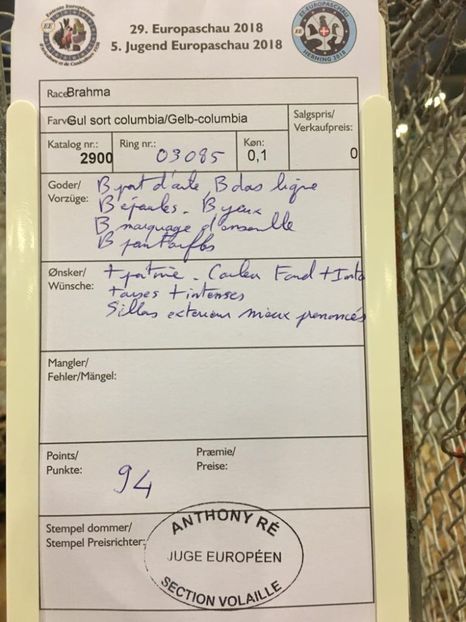 29. Europaschau 2018
5. Jugend Europaschau 2018
EE
EE
HERNING 2018
Race Brahma
Farve Gul sort columbia/Gelb-columbia
Katalog nr.: 2900
Ring nr.: 03085
Køn: 0,1
Salgspris/
Verkaufpreis: 0
Goder/
Vorzüge:
B port d'aile, B dos ligne
B épaules. B yeux
B marquage d'ensemble
B
Ønsker/
Wünsche:
+ Couleur Fond +
+ intenses
exterieur mieux prononcés
Mangler/
Fehler/Mängel:
Points/
Punkte: 94
Præmie/
Preise:
Stempel dommer/
Stempel Preisrichter:
ANTHONY RÉ
JUGE EUROPÉEN
SECTION VOLAILLE